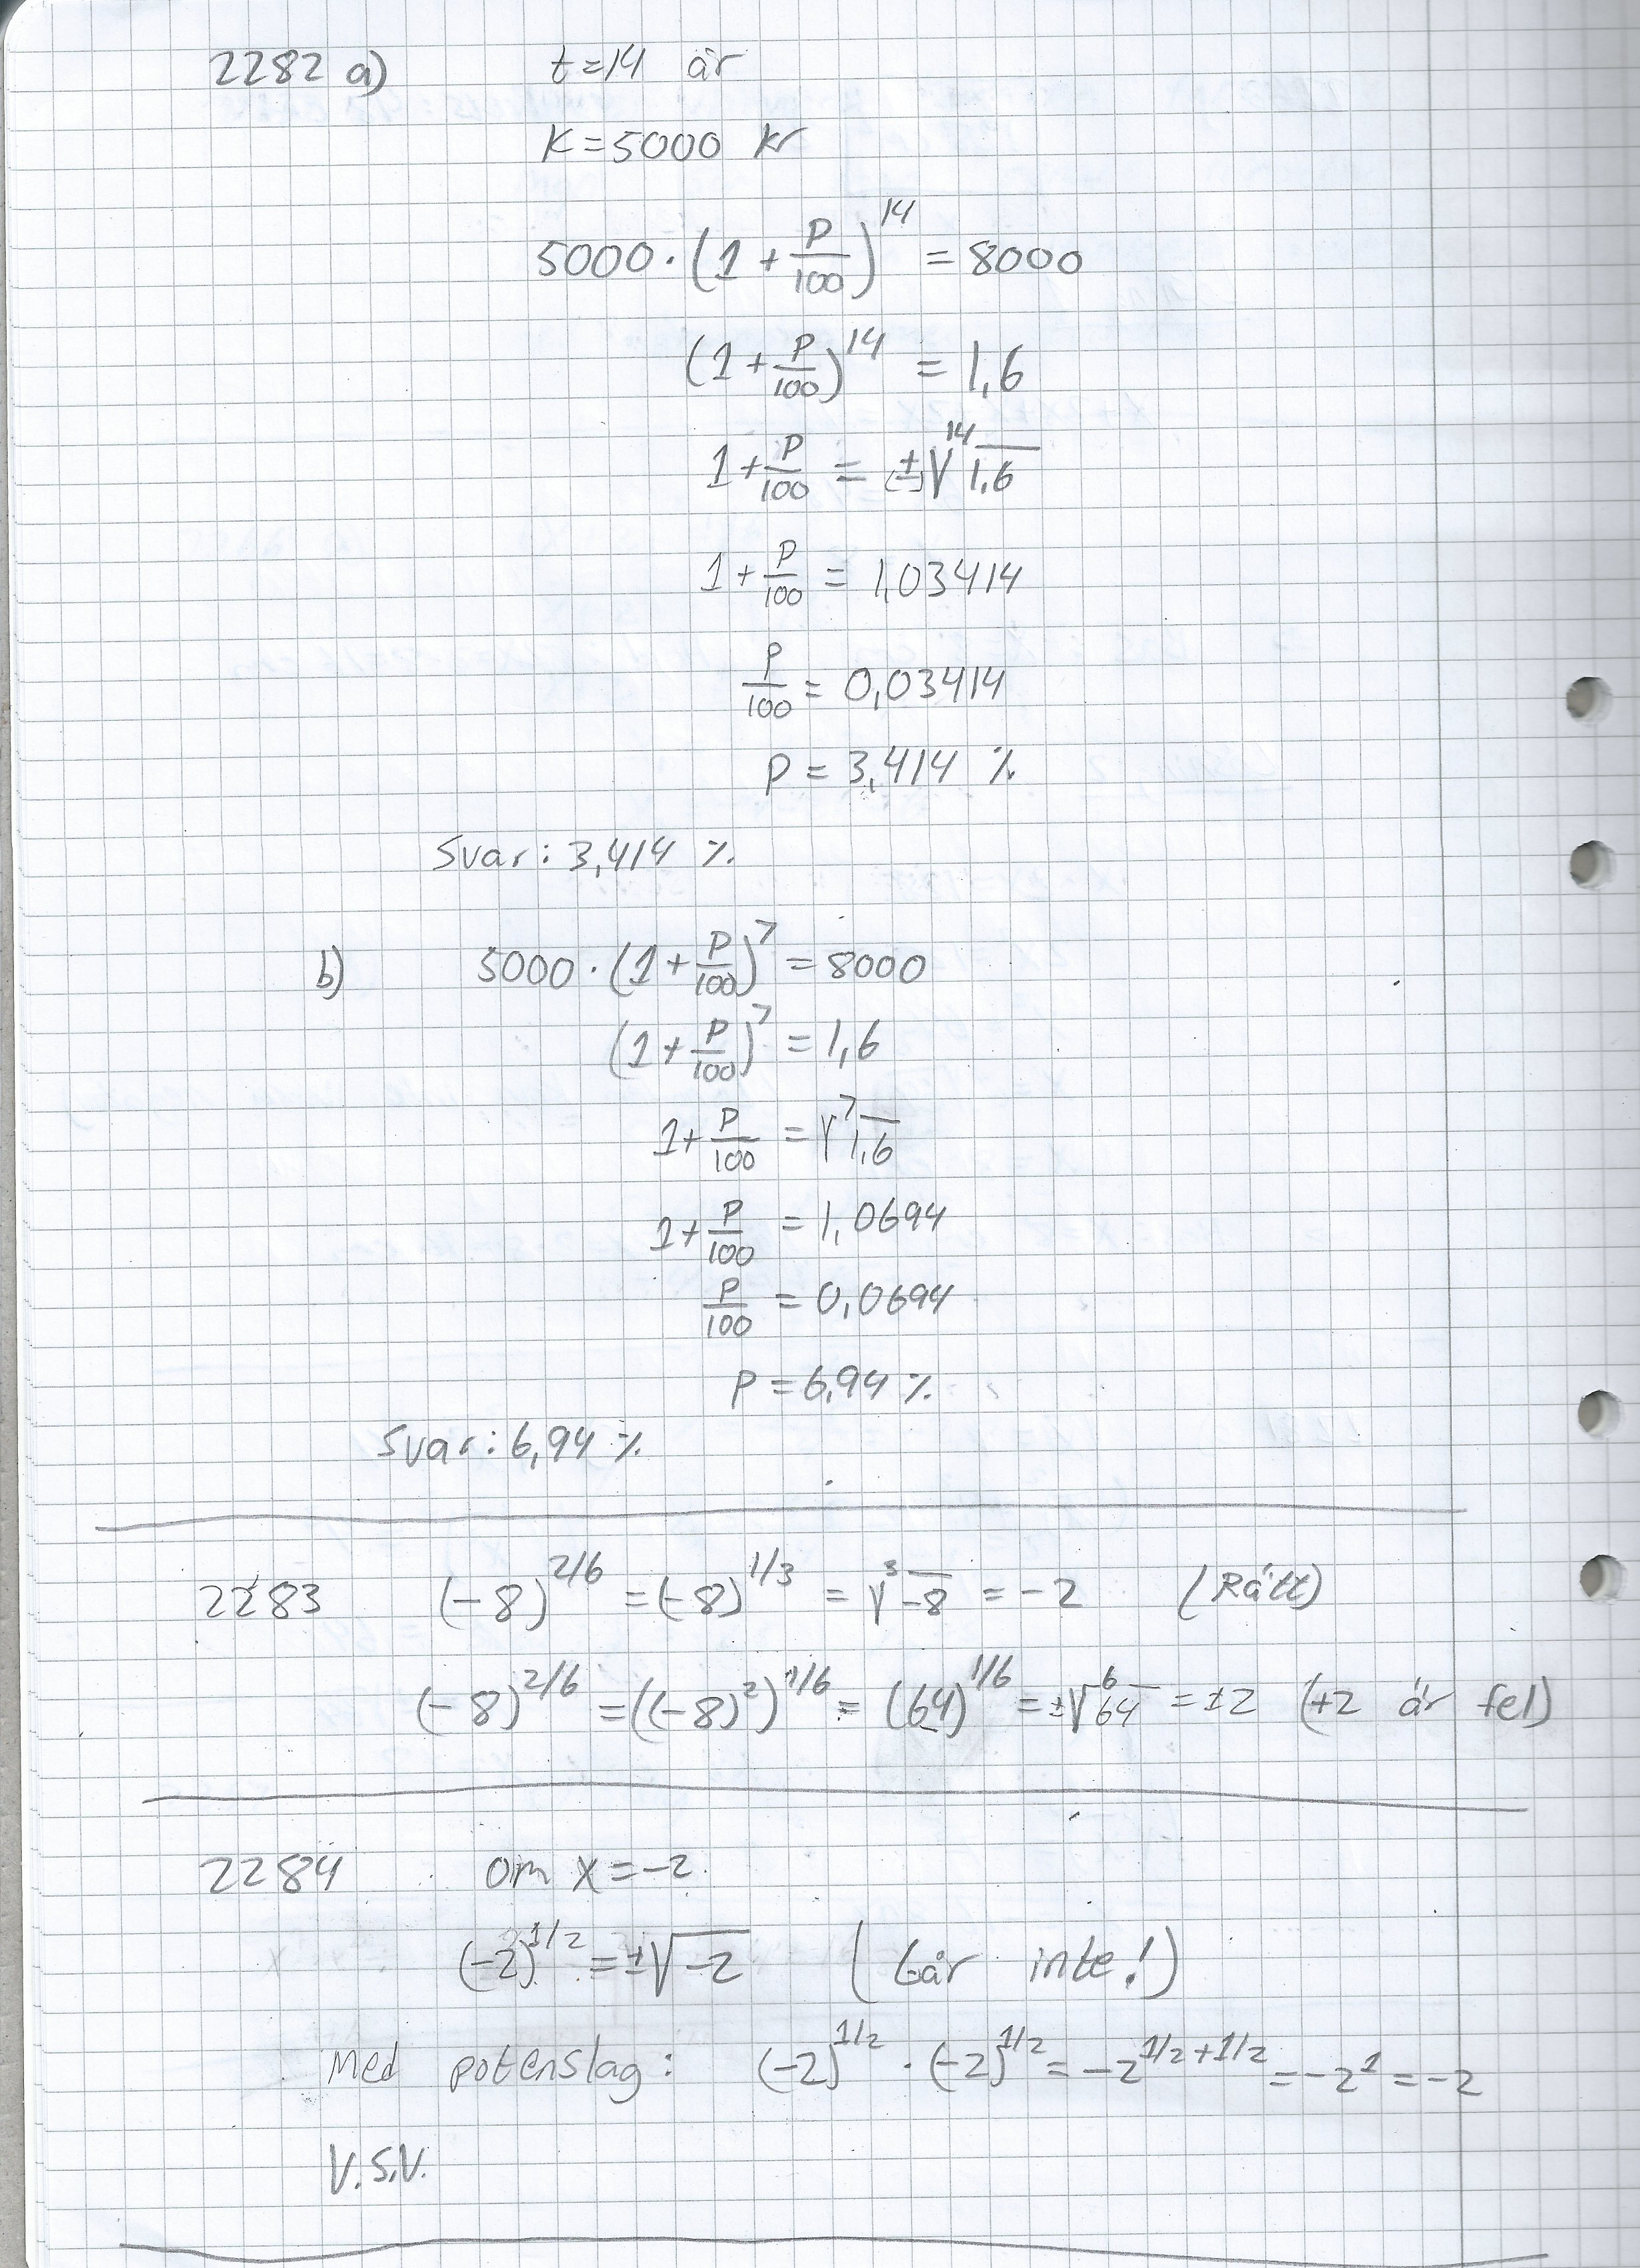 2282 a) t=14 år
K=5000 kr
5000·(1+p/100)^14 = 8000
(1+p/100)^14 = 1,6
1+p/100 = (±)¹⁴√1,6
1+p/100 = 1,03414
p/100 = 0,03414
p = 3,414 %
Svar: 3,414 %
b) 5000·(1+p/100)^7 = 8000
(1+p/100)^7 = 1,6
1+p/100 = ⁷√1,6
1+p/100 = 1,0694
p/100 = 0,0694
p = 6,94 %
Svar: 6,94 %
2283 (-8)^2/6 = (-8)^1/3 = ³√-8 = -2 (Rätt)
(-8)^2/6 = ((-8)^2)^1/6 = (64)^1/6 = ±⁶√64 = ±2 (+2 är fel)
2284 om x=-2
(-2)^1/2 = ±√-2 (Går inte!)
Med potenslag: (-2)^1/2 · (-2)^1/2 = -2^1/2+1/2 = -2^1 = -2
V.S.V.